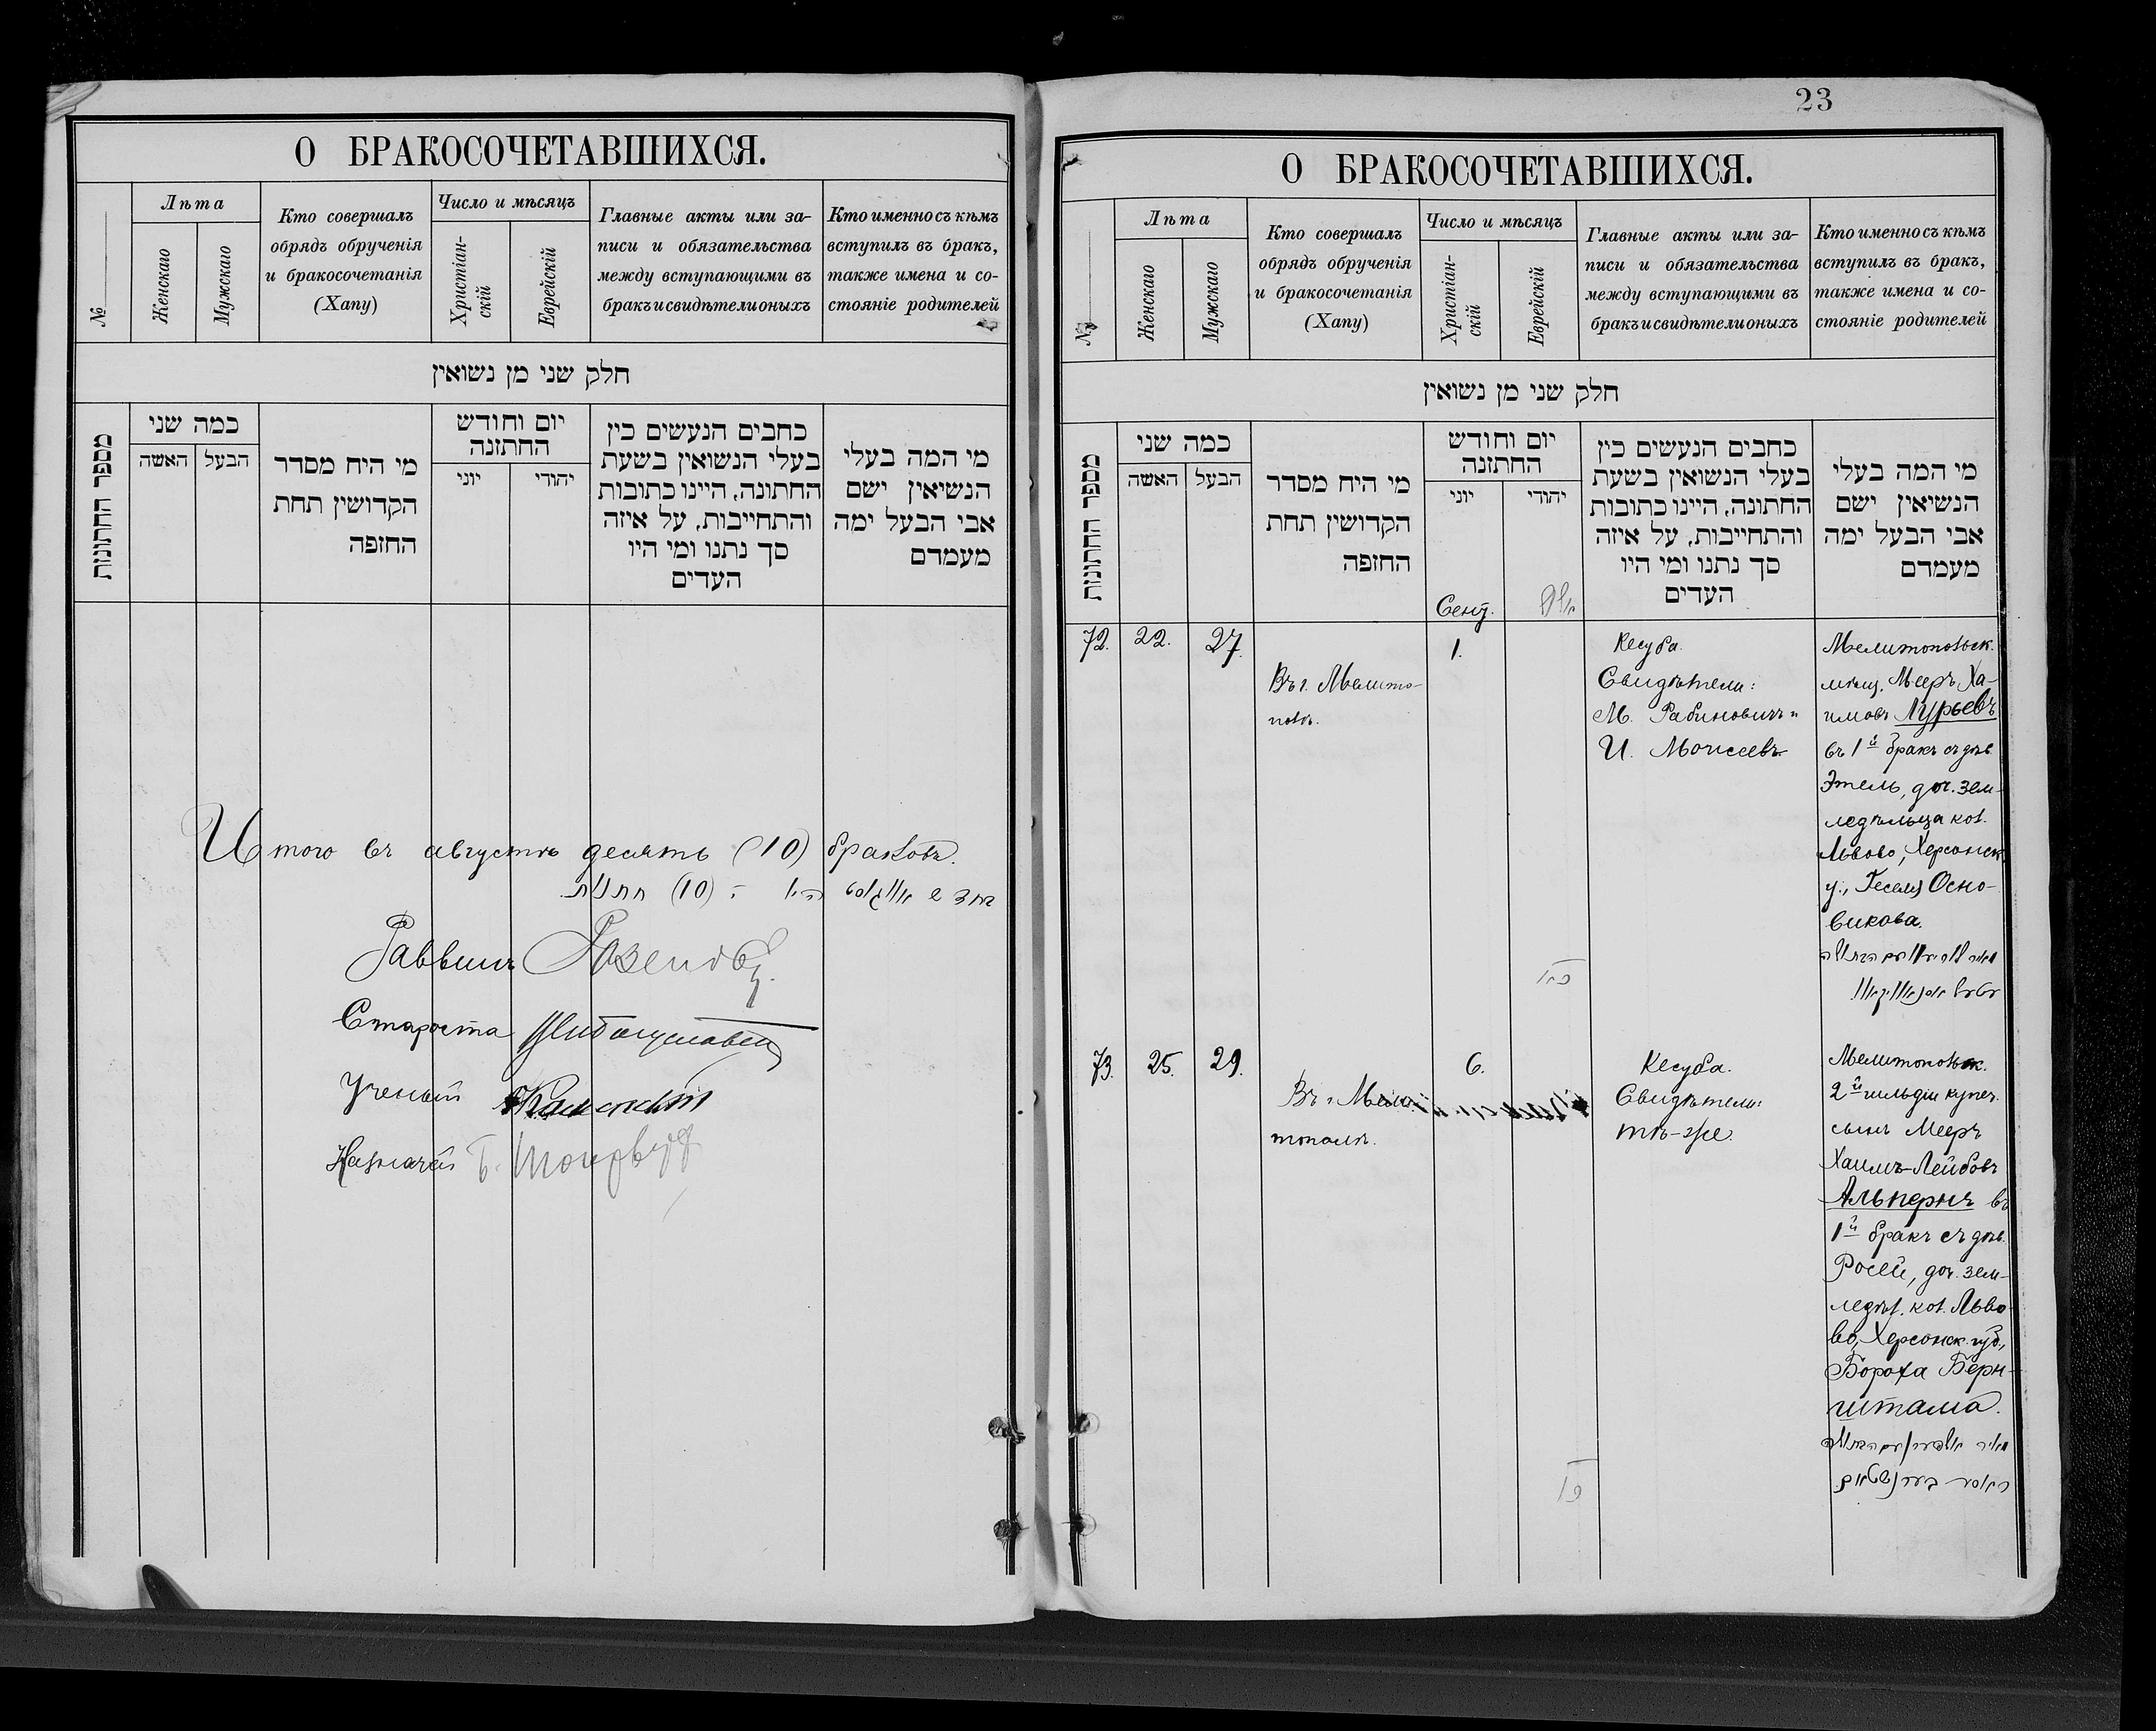 О БРАКОСОЧЕТАВШИХСЯ.
№
Лѣта
Женскаго
Мужскаго
Кто совершалъ
обрядъ обрученія
и бракосочетанія
(Хапу)
Число и мѣсяцъ
Христіан-
скій
Еврейскій
Главные акты или за-
писи и обязательства
между вступающими въ
бракъ и свидѣтели оныхъ
Кто именно съ кѣмъ
вступилъ въ бракъ,
также имена и со-
стояніе родителей
חלק שני מן נשואין
מספר החתונות
כמה שני
האשה
הבעל
מי היח מסדר
הקדושין תחת
החזפה
יום וחודש
החתזנה
יוני
יהודי
כחבים הנעשים כין
בעלי הנשואין בשעת
החתונה, היינו כתובות
והתחייבות, על איזה
סך נתנו ומי היו
העדים
מי המה בעלי
הנשיאין ישם
אבי הבעל ימה
מעמדם
Итого въ августѣ десять (10) браковъ.
(10)
Раввинъ
Староста
Ученый Каменскій
Казначей
23
О БРАКОСОЧЕТАВШИХСЯ.
№
Лѣта
Женскаго
Мужскаго
Кто совершалъ
обрядъ обрученія
и бракосочетанія
(Хапу)
Число и мѣсяцъ
Христіан-
скій
Еврейскій
Главные акты или за-
писи и обязательства
между вступающими въ
бракъ и свидѣтели оныхъ
Кто именно съ кѣмъ
вступилъ въ бракъ,
также имена и со-
стояніе родителей
חלק שני מן נשואין
מספר החתונות
כמה שני
האשה
הבעל
מי היח מסדר
הקדושין תחת
החזפה
יום וחודש
החתזנה
יוני
יהודי
כחבים הנעשים כין
בעלי הנשואין בשעת
החתונה, היינו כתובות
והתחייבות, על איזה
סך נתנו ומי היו
העדים
מי המה בעלי
הנשיאין ישם
אבי הבעל ימה
מעמדם
Сент.
אלול
72.
22.
27.
Въ г. Мелито-
полѣ.
1.
Кесуба.
Свидѣтели:
М. Рабиновичъ и
И. Моисеевъ
Мелитопольск.
мѣщ. Мееръ Ха-
имовъ Лурьевъ
въ 1й бракъ съ дѣв.
Этель, доч. зем-
ледѣльца кол.
Львово, Херсонск.
у., Геселя Осно-
викова.
73.
25.
29.
Въ г. Мели-
тополѣ.
6.
Кесуба.
Свидѣтели:
тѣ-же.
Мелитопольск.
2й гильдіи купеч.
сынъ Мееръ
Хаимъ-Лейбовъ
Альпернъ въ
1й бракъ съ дѣв.
Росей, доч. зем-
ледѣл. кол. Льво-
во, Херсонск. губ.,
Бороха Берн-
штама.